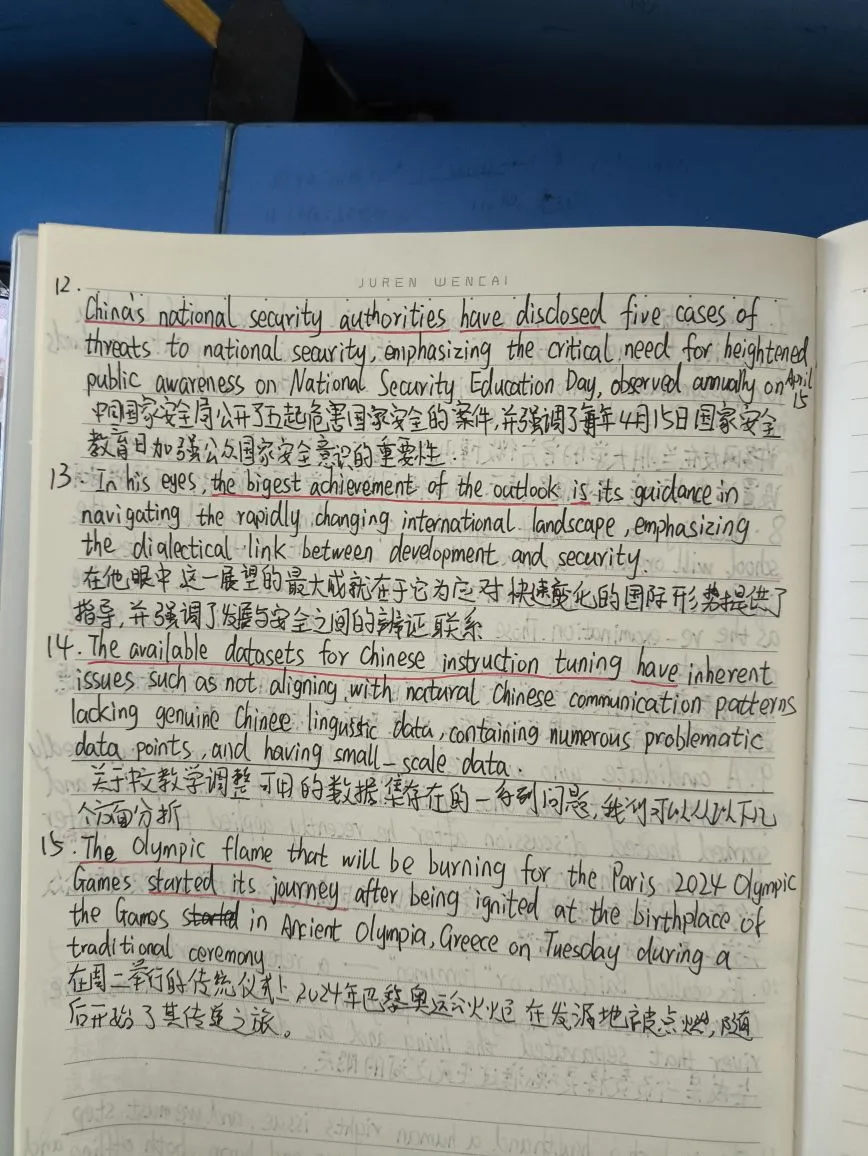 JUREN WENCAI
12.
China's national security authorities have disclosed five cases of
threats to national security, emphasizing the critical need for heightened
public awareness on National Security Education Day, observed annually on April 15
中国国家安全局公开了五起危害国家安全的案件,并强调了每年4月15日国家安全
教育日加强公众国家安全意识的重要性.
13. In his eyes, the bigest achievement of the outlook is its guidance in
navigating the rapidly changing international landscape, emphasizing
the dialectical link between development and security.
在他眼中这一展望的最大成就在于它为应对快速变化的国际形势提供了
指导,并强调了发展与安全之间的辨证联系
14. The available datasets for Chinese instruction tuning have inherent
issues such as not aligning with natural Chinese communication patterns
lacking genuine Chinee linguistic data, containing numerous problematic
data points, and having small-scale data.
关于中文教学调整可用的数据集存在的一系列问题,我们可以从以下几
个方面分析
15. The Olympic flame that will be burning for the Paris 2024 Olympic
Games started its journey after being ignited at the birthplace of
the Games started in Ancient Olympia, Greece on Tuesday during a
traditional ceremony
在周二举行的传统仪式上2024年巴黎奥运会火炬在发源地被点燃,随
后开始了其传递之旅。